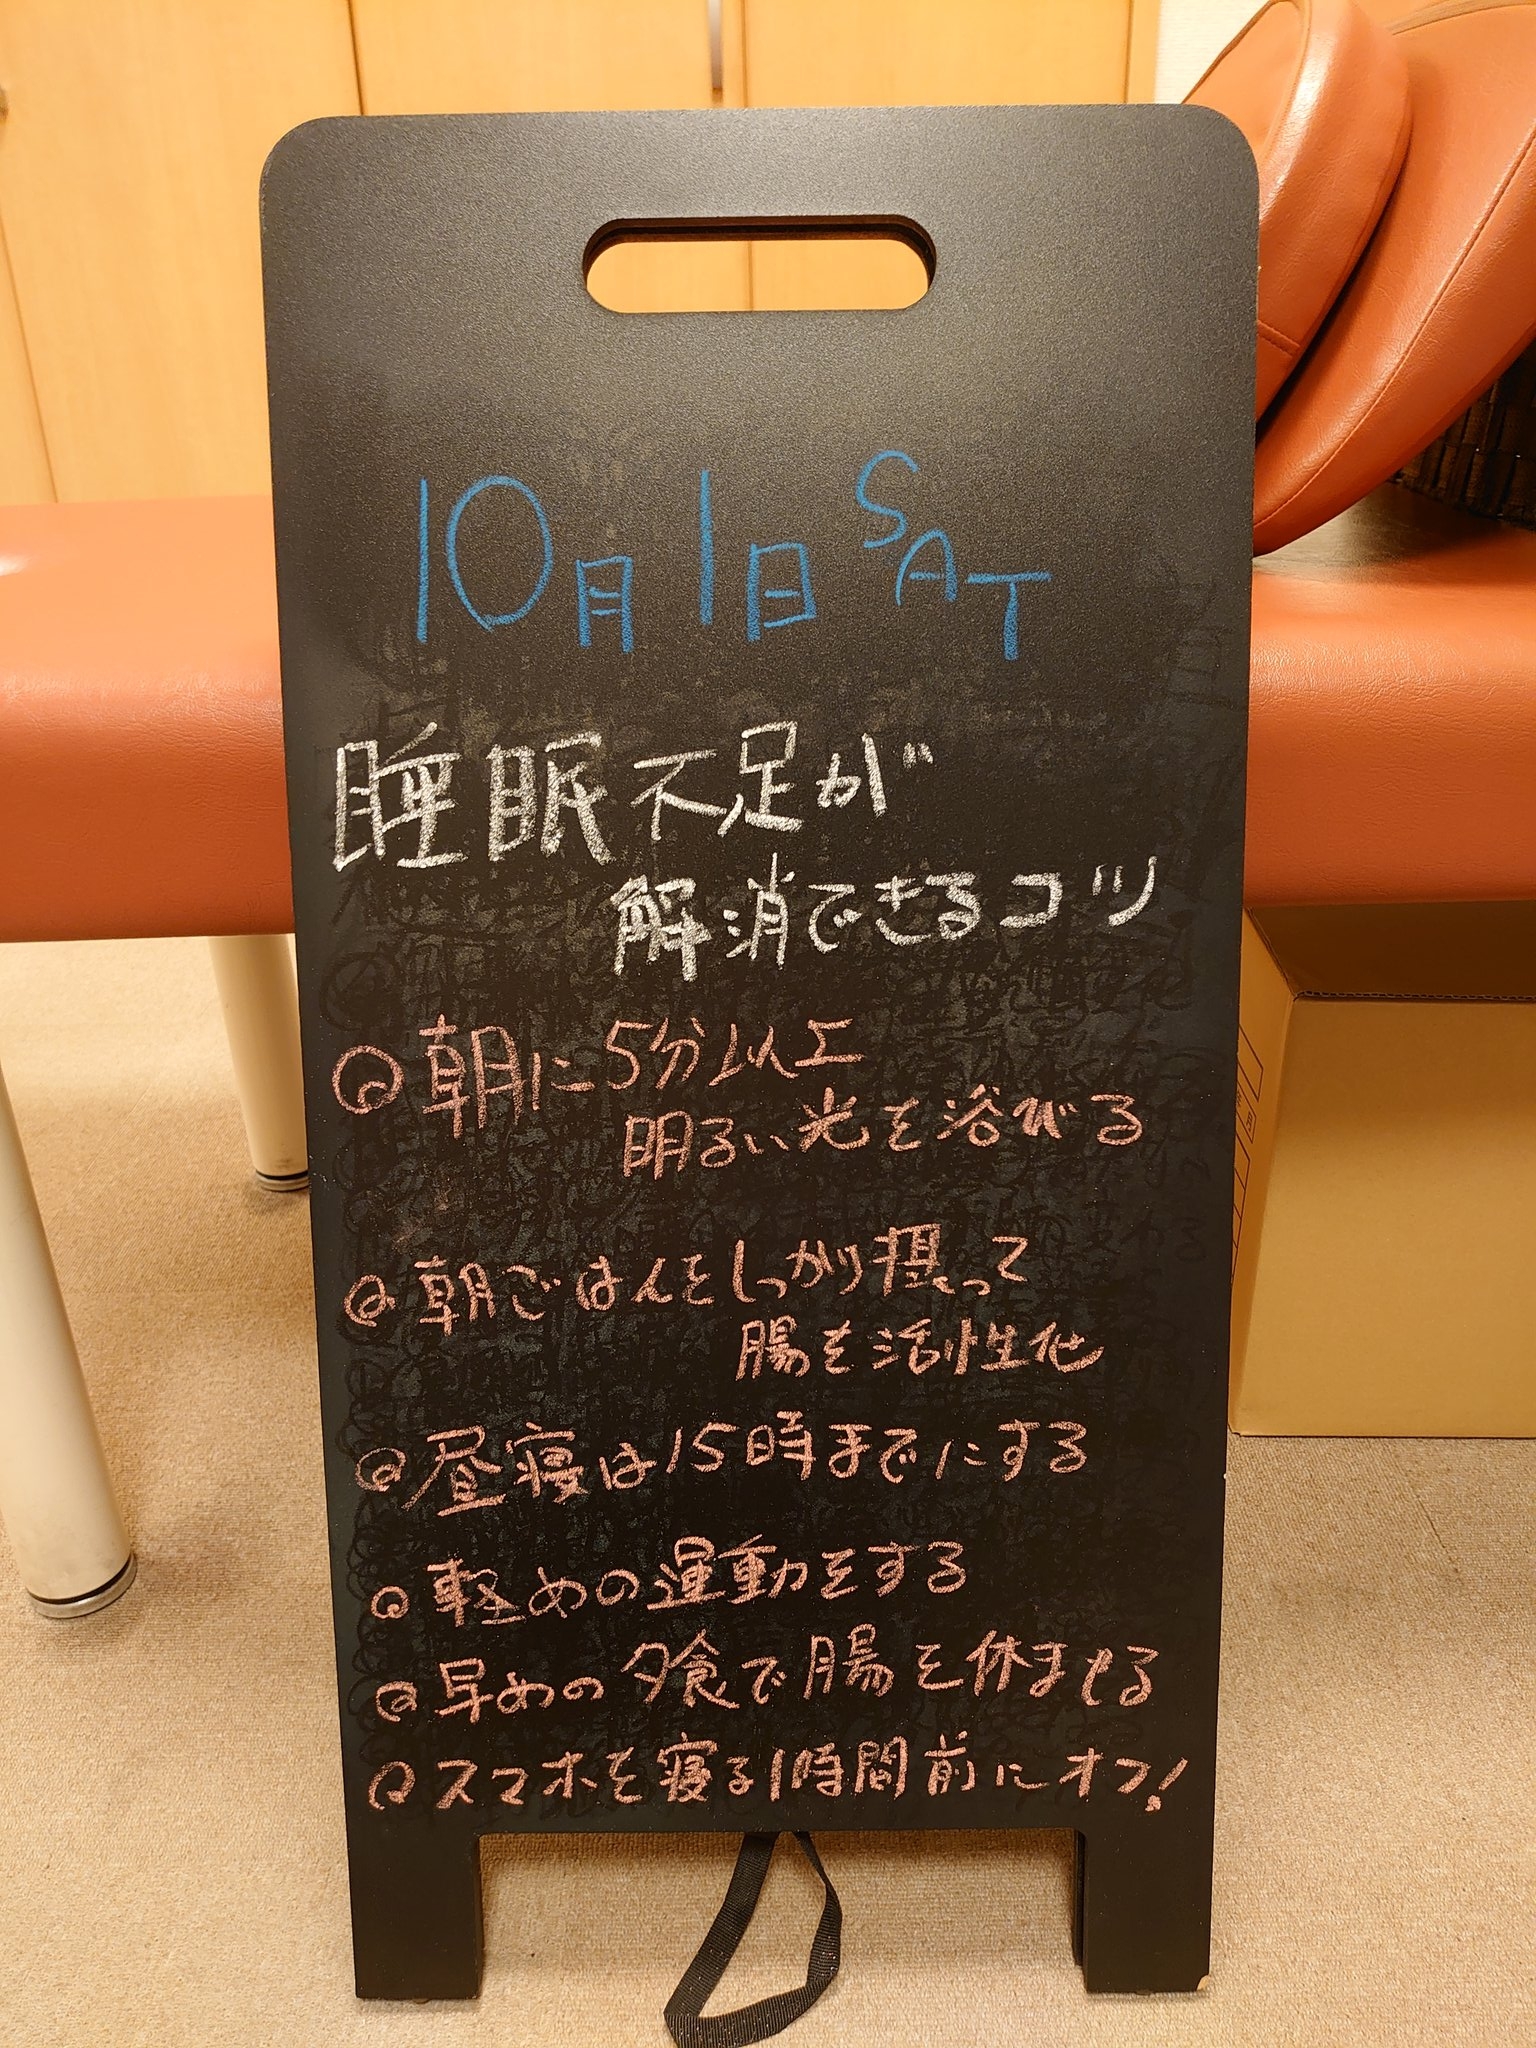 10月1日 SAT
睡眠不足が
解消できるコツ
朝に5分以上
明るい光を浴びる
朝ごはんをしっかり摂って
腸を活性化
昼寝は15時までにする
軽めの運動をする
早めの夕食で腸を休ませる
スマホを寝る1時間前にオフ!